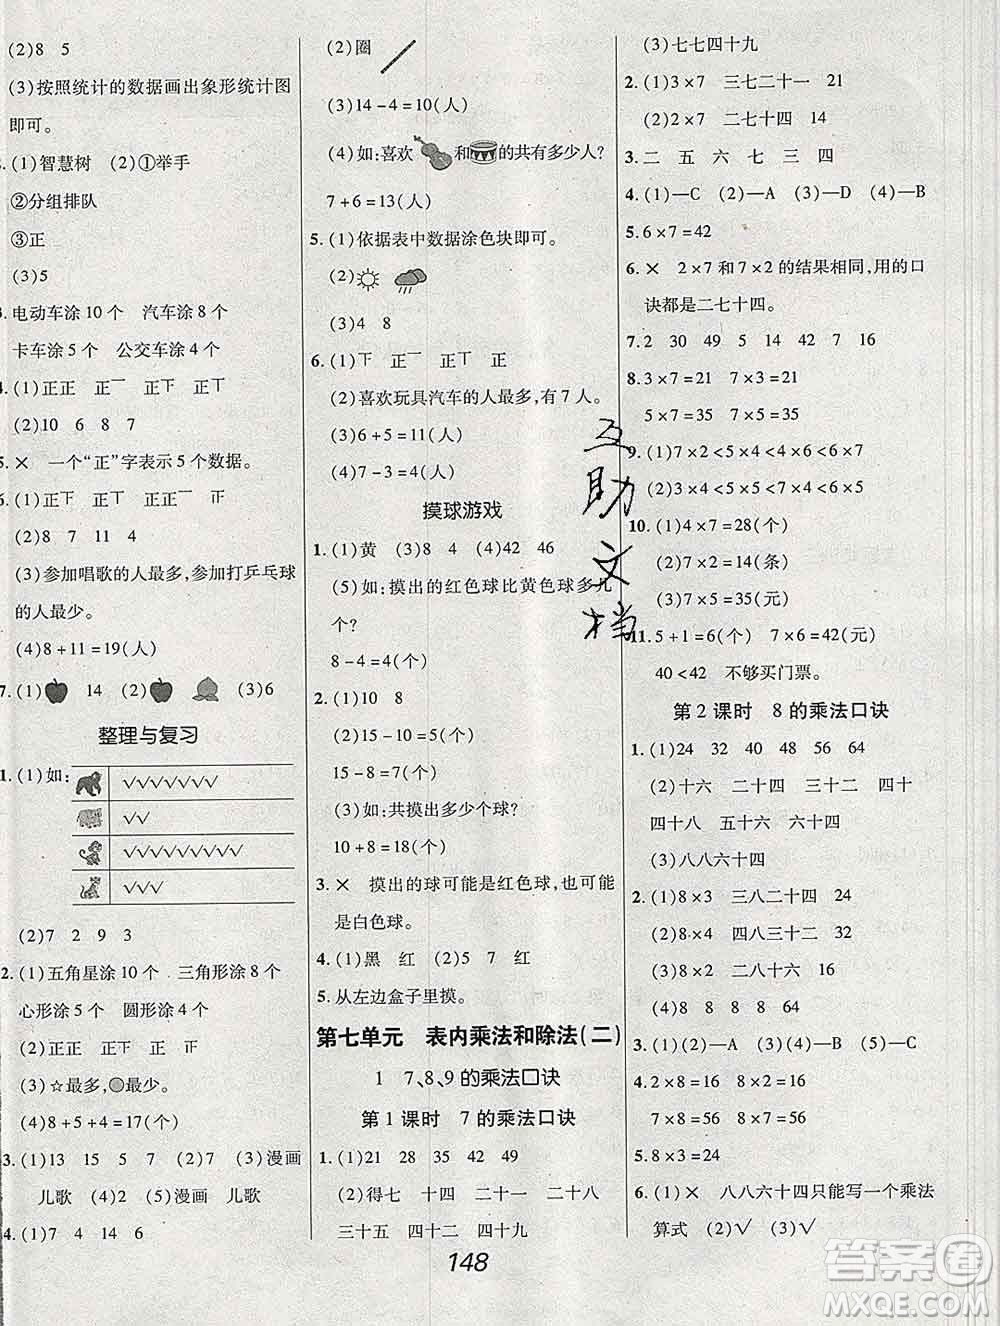 (2)8 5
(3)按照统计的数据画出象形统计图
即可。
(1)智慧树 (2)①举手
②分组排队
③正
(3)5
电动车涂 10 个 汽车涂 8 个
卡车涂 5 个 公交车涂 4 个
(2)10 6 8 7
5. × 一个“正”字表示 5 个数据。
(2)8 7 11 4
(3)参加唱歌的人最多,参加打乒乓球
的人最少。
(4)8+11=19(人)
7.(1) 14 (2) (3)6
整理与复习
1.(1)如:
√√√√√√√√
√√
√√√√√√√√√
√√√
(2)7 2 9 3
2.(1)五角星涂 10 个 三角形涂 8 个
心形涂 5 个 圆形涂 4 个
(3)☆最多,●最少。
(4)8+5+4=17(个)
3.(1)13 15 5 7 (2)7 (3)漫画
儿歌 (4)2 (5)漫画 儿歌
4.(1)7 4 14 6
(2)圈
(3)14-4=10(人)
(4)如:喜欢 和 的共有多少人?
7+6=13(人)
5.(1)依据表中数据涂色块即可。
(2)
(3)4 8
(2)喜欢玩具汽车的人最多,有 7 人。
(3)6+5=11(人)
(4)7-3=4(人)
摸球游戏
1.(1)黄 (3)8 4 (4)42 46
(5)如:摸出的红色球比黄色球多几
个?
8-4=4(个)
2.(1)10 8
(2)15-10=5(个)
15-8=7(个)
(3)如:共摸出多少个球?
10+8=18(个)
3. × 摸出的球可能是红色球,也可能
是白色球。
4.(1)黑 红 (2)5 7 红
5. 从左边盒子里摸。
第七单元 表内乘法和除法(二)
1 7、8、9 的乘法口诀
第 1 课时 7 的乘法口诀
1.(1)21 28 35 42 49
(2)得七 十四 二十一 二十八
三十五 四十二 四十九
(3)七七四十九
2.(1)3×7 三七二十一 21
(2)2×7 二七十四 14
3. 二 五 六 七 三 四
4.(1)—C (2)—A (3)—D (4)—B
5.6×7=42
6. × 2×7 和 7×2 的结果相同,用的口
诀都是二七十四。
7.2 30 49 5 14 42 7 16
8.3×7=21 7×3=21
5×7=35 7×5=35
9.(1)7×2<5×4<6×4<6×7
(2)3×4<5×5<7×5<6×7
10.(1)4×7=28(个)
(2)7×2=14(条)
(3)7×5=35(元)
11.5+1=6(个) 7×6=42(元)
40<42 不够买门票。
第 2 课时 8 的乘法口诀
1.(1)24 32 40 48 56 64
(2)十六 二十四 三十二 四十
四十八 五十六 六十四
(3)八八六十四
2.(1)8×3 三八二十四 24
(2)8×4 四八三十二 32
(3)8×2 二八十六 16
3.(1)—D (2)—A (3)—B (5)—C
4.2×8=16 8×2=16
7×8=56 8×7=56
5.8×3=24
6.(1)× 八八六十四只能写一个乘法
算式 (2)√ (3)√
互助文档
148
答案圈
MXQE.COM